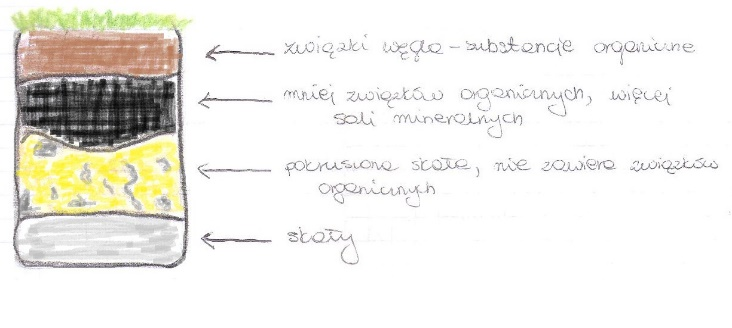 związki węgla - substancje organiczne
mniej związków organicznych, więcej
soli mineralnych
pokruszona skała, nie zawiera związków
organicznych
skały